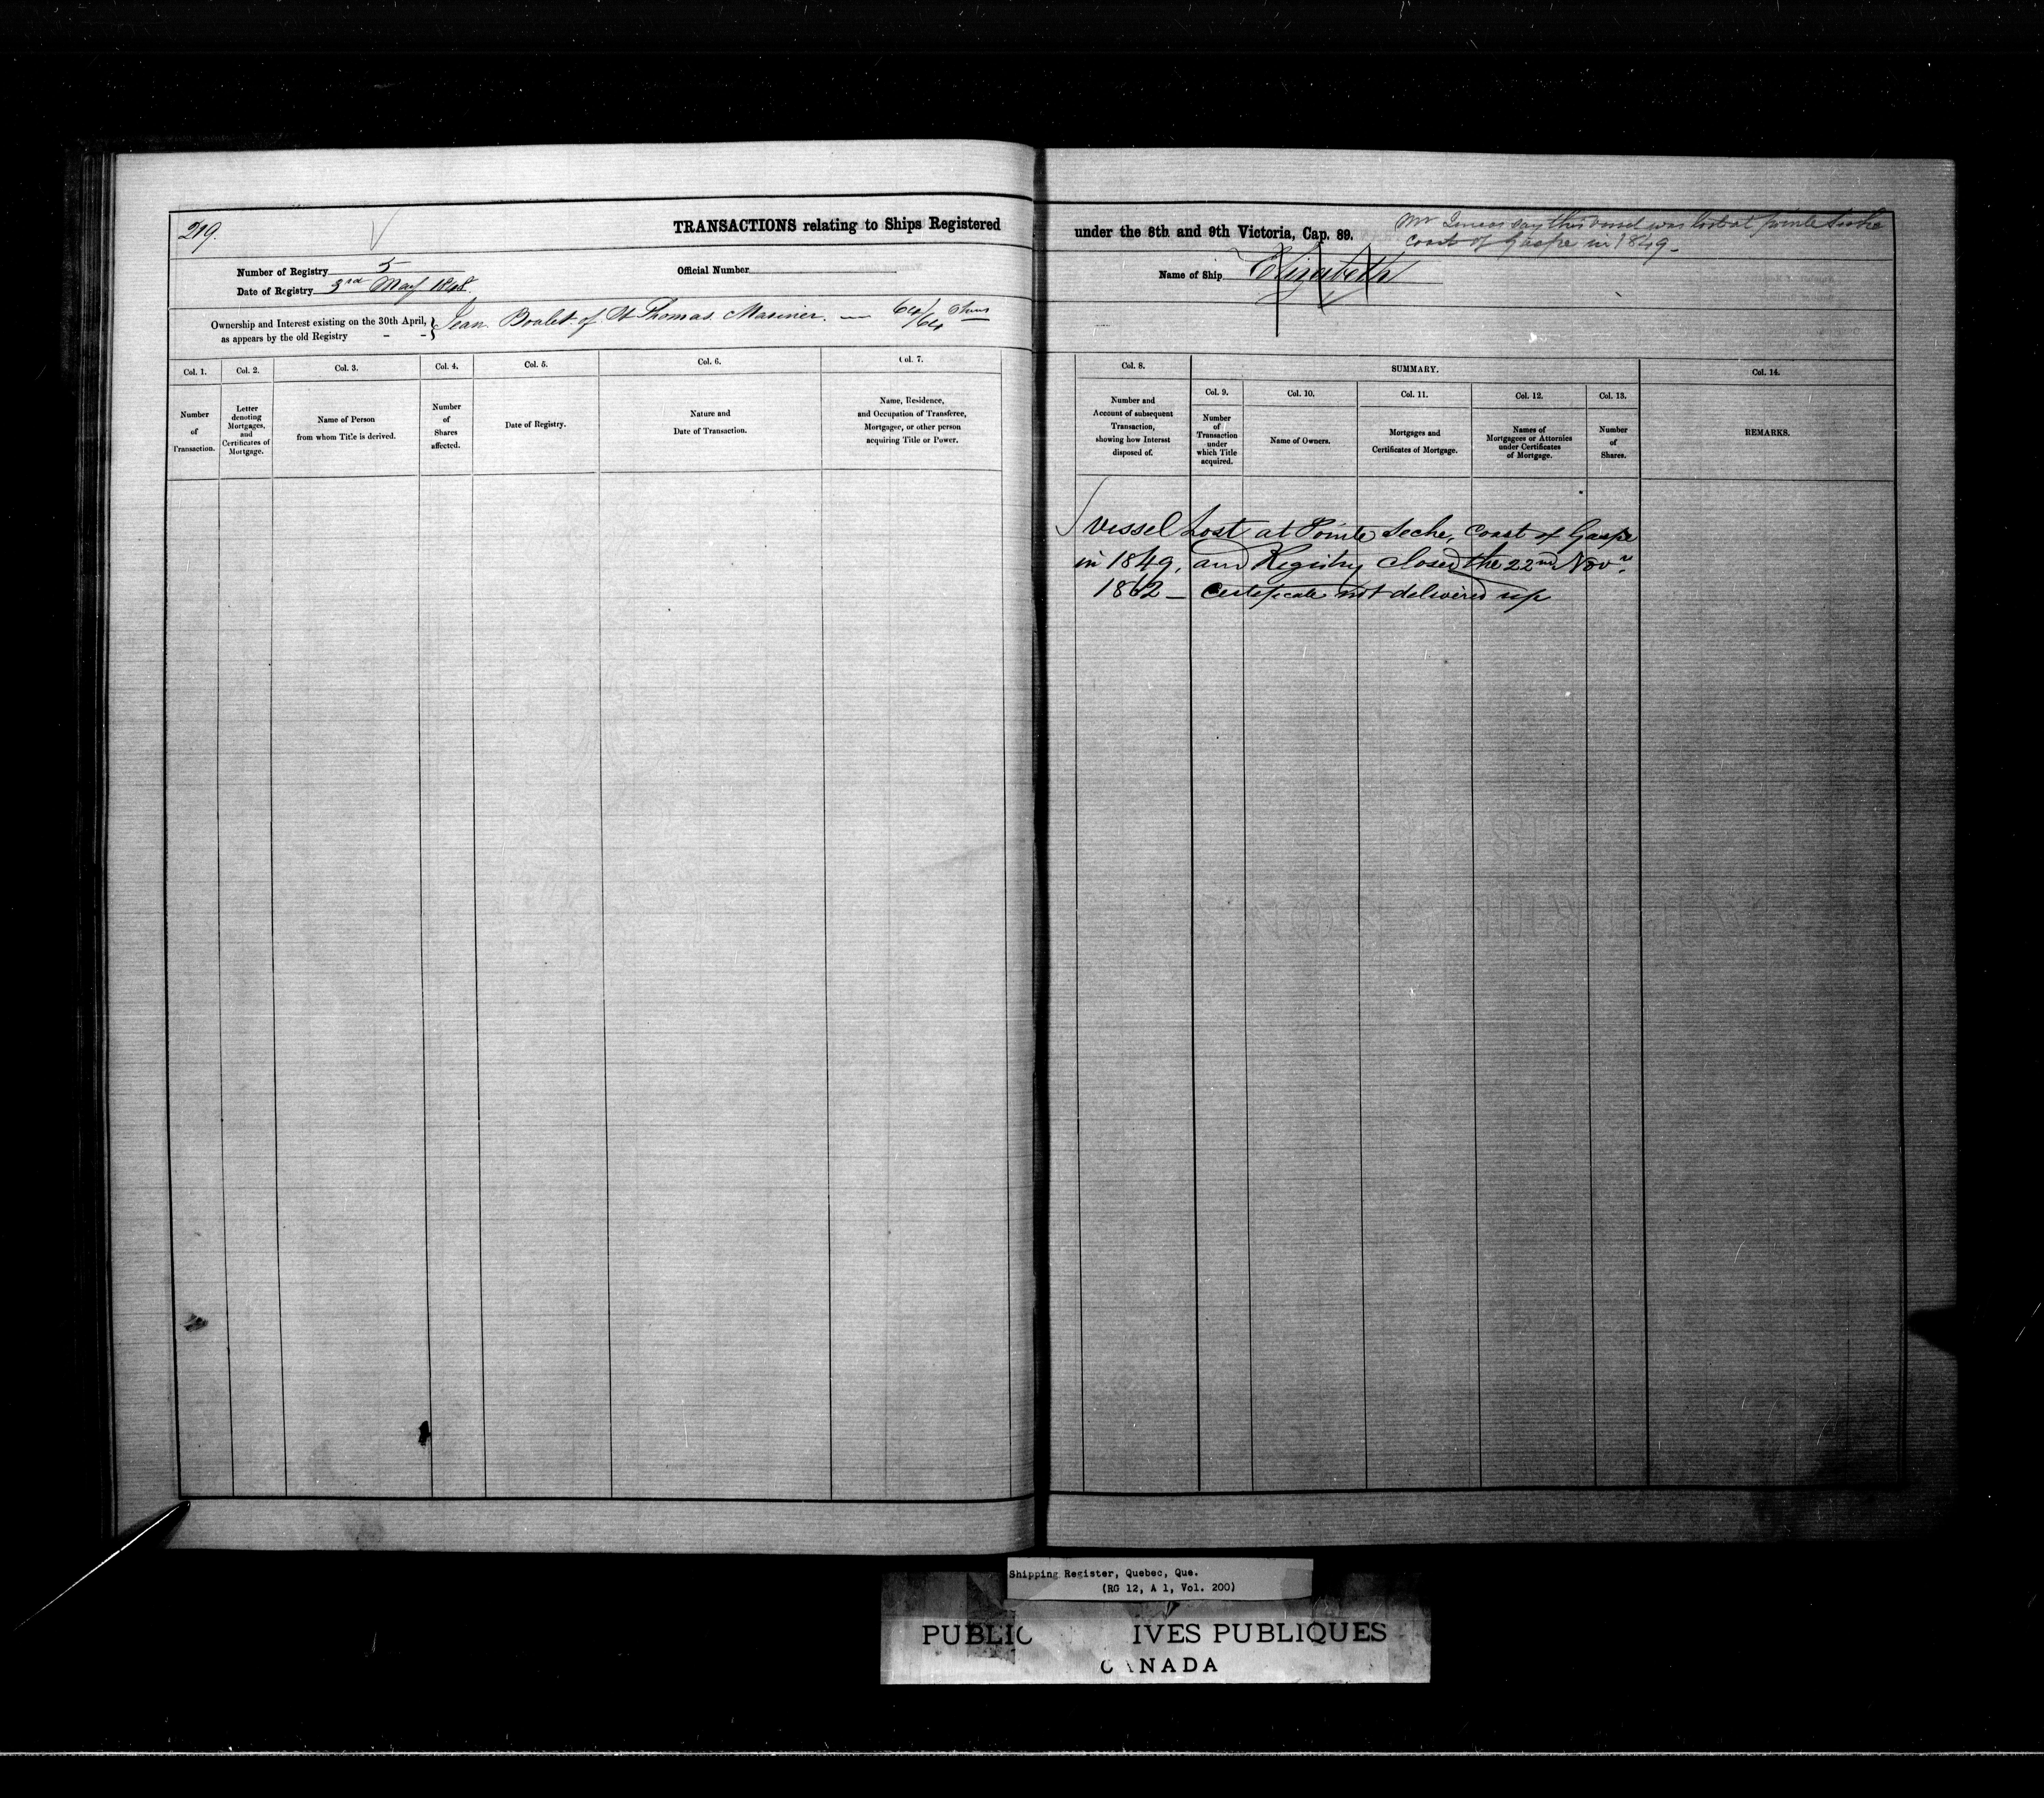 219.
TRANSACTIONS relating to Ships Registered
under the 8th. and 9th Victoria, Cap. 89.
Mr say this vessel was lost at pointe Seche
coast of Gaspe in 1849 -
Number of Registry 5
Official Number
Name of Ship Elizabeth
Date of Registry 3rd May 1848
Ownership and Interest existing on the 30th April,
as appears by the old Registry - -
} Jean Boulet of St Thomas Mariner. — 64/64 Shares
Col. 1.
Col. 2.
Col. 3.
Col. 4.
Col. 5.
Col. 6.
Col. 7.
Number
of
Transaction.
Letter
denoting
Mortgages,
and
Certificates of
Mortgage.
Name of Person
from whom Title is derived.
Number
of
Shares
affected.
Date of Registry.
Nature and
Date of Transaction.
Name, Residence,
and Occupation of Transferee,
Mortgagee, or other person
acquiring Title or Power.
Col. 8.
SUMMARY.
Col. 14.
Number and
Account of subsequent
Transaction,
showing how Interest
disposed of.
Col. 9.
Col. 10.
Col. 11.
Col. 12.
Col. 13.
Number
of
Transaction
under
which Title
acquired.
Name of Owners.
Mortgages and
Certificates of Mortgage.
Names of
Mortgagees or Attornies
under Certificates
of Mortgage.
Number
of
Shares.
REMARKS.
Vessel Lost at Pointe Seche, Coast of Gaspe
in 1849, and Registry Closed the 22nd Novr.
1862 - Certificate not delivered up
Shipping Register, Quebec, Que.
(RG 12, A 1, Vol. 200)
PUBLIC IVES PUBLIQUES
CANADA